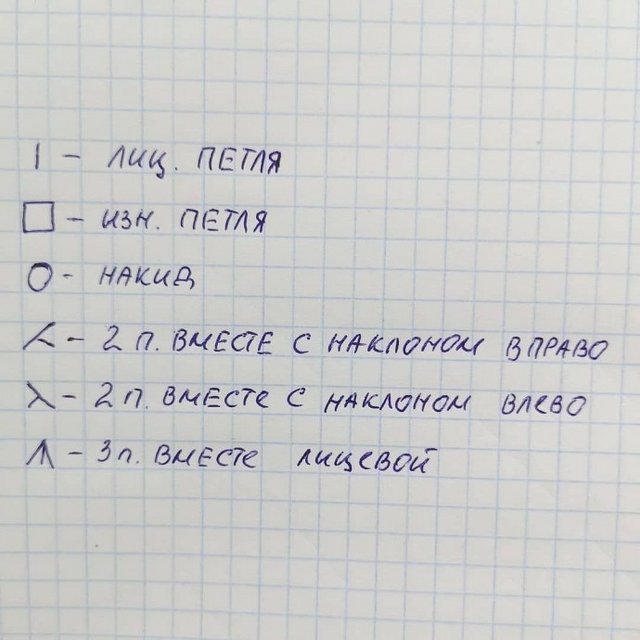 I - ЛИЦ. ПЕТЛЯ
□ - ИЗН. ПЕТЛЯ
O - НАКИД
⼃ - 2 П. ВМЕСТЕ С НАКЛОНОМ ВПРАВО
λ - 2 П. ВМЕСТЕ С НАКЛОНОМ ВЛЕВО
⩚ - 3 П. ВМЕСТЕ ЛИЦЕВОЙ